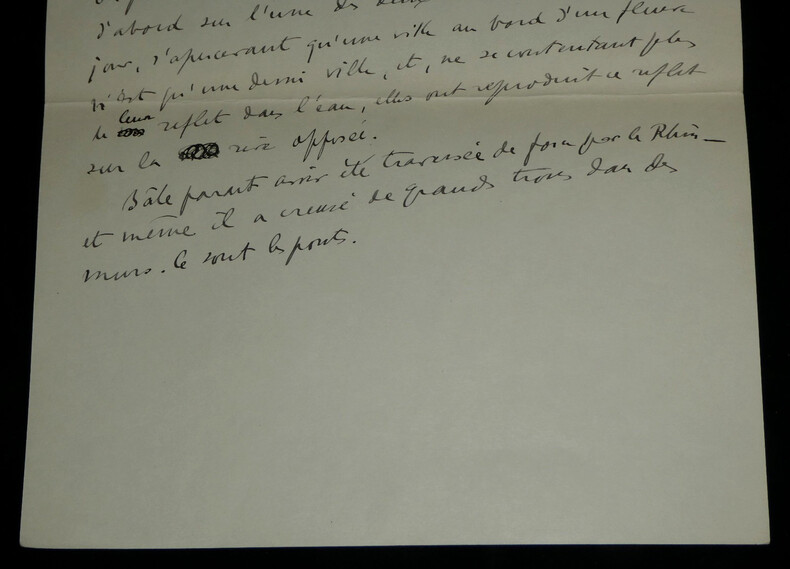 d'abord sur l'une des deux
jour, s'apercevant qu'une ville au bord d'un fleuve
n'est qu'une demi ville, et, ne se contentant plus
de leur reflet dans l'eau, elles ont reproduit ce reflet
sur la rive opposée.
Bâle parait avoir été traversée de force par le Rhin —
et même il a creusé de grands trous dans des
murs. Ce sont les ponts.